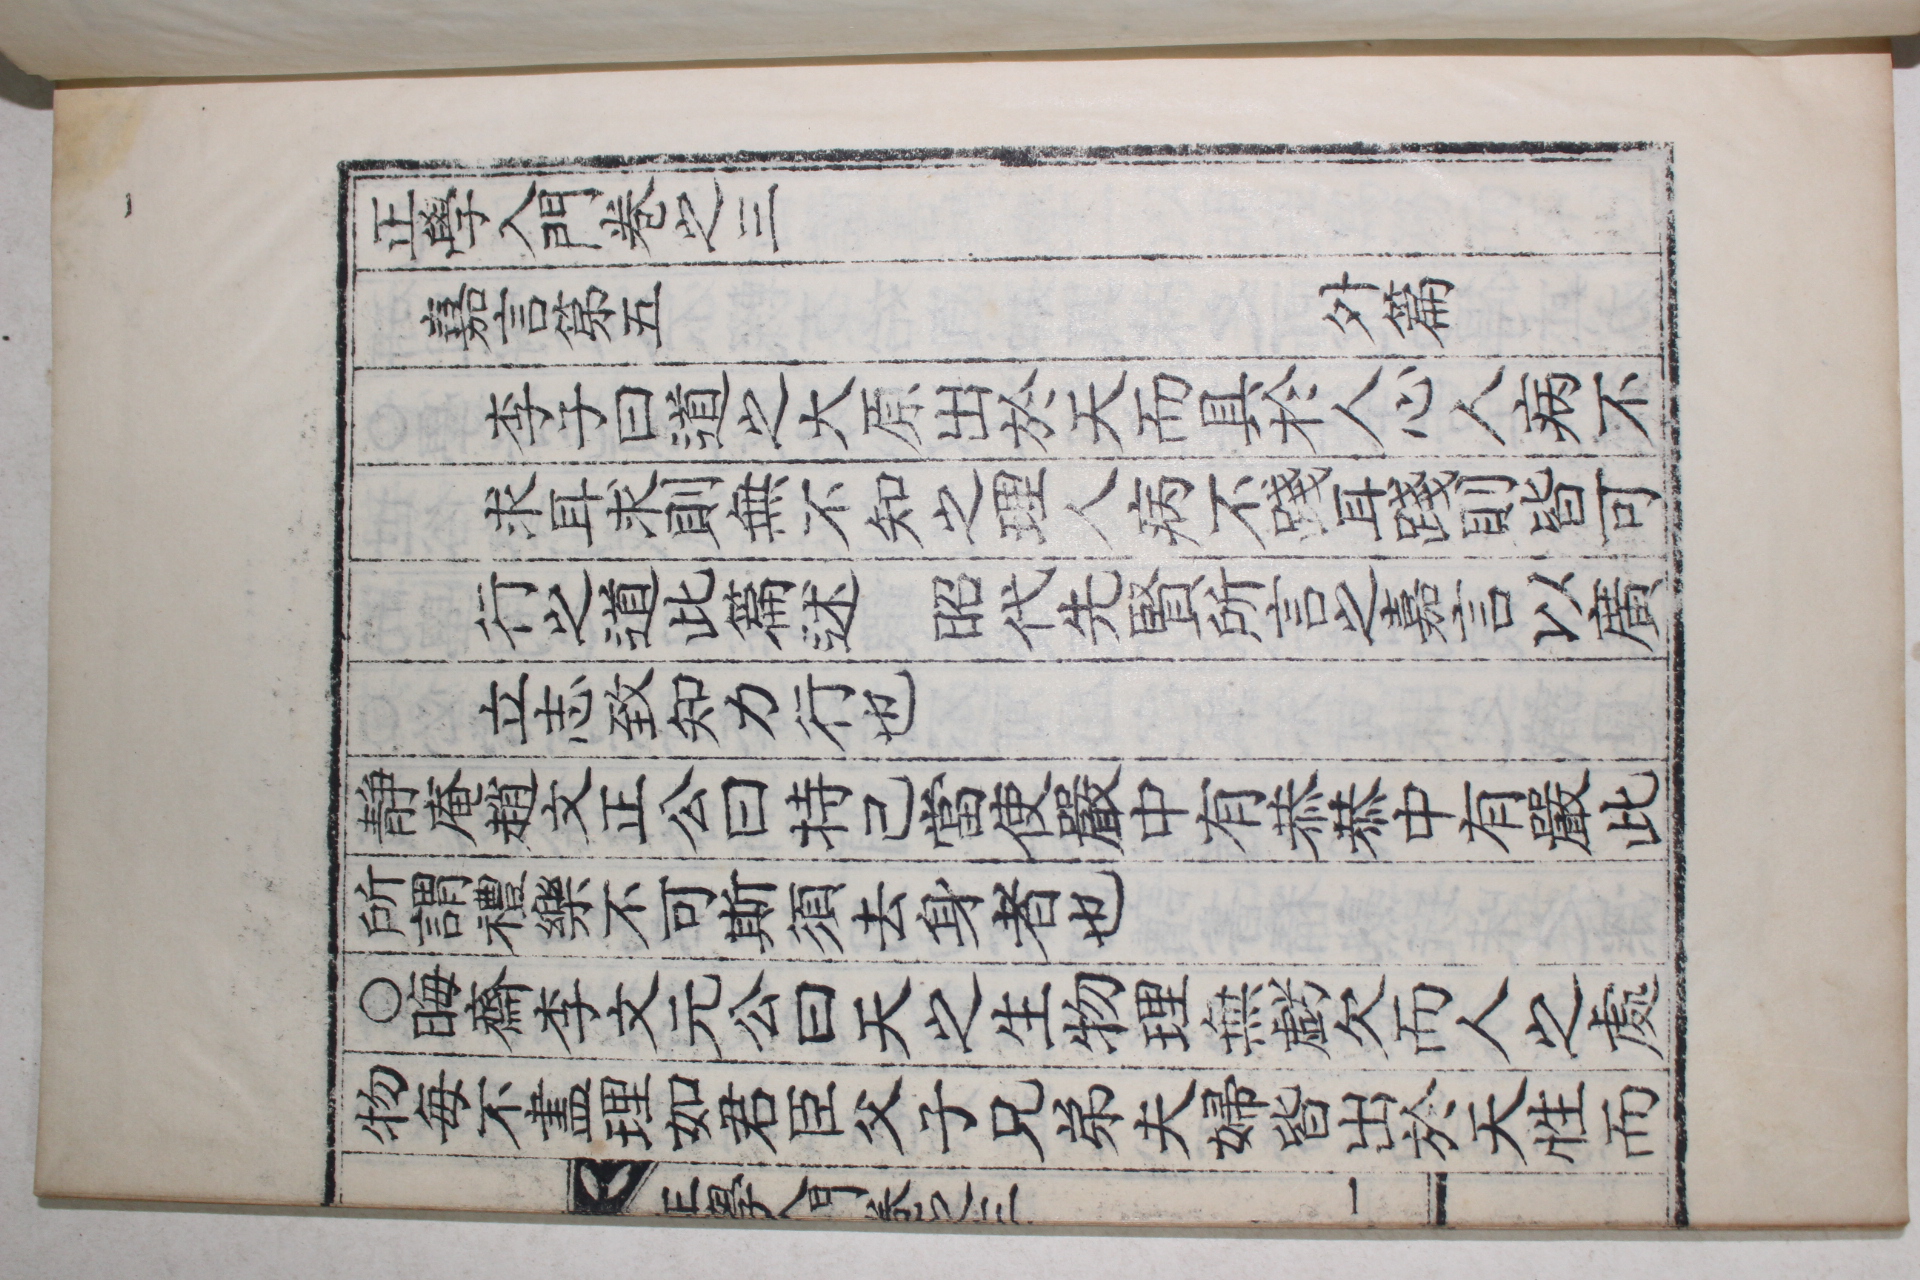 正學入門卷之三
嘉言第五 外篇
李子曰道之大原出於天而具於人心人病不
求耳求則無不知之理人病不踐耳踐則皆可
行之道此篇述 昭代先賢所言之嘉言以廣
立志致知力行也
靜庵趙文正公曰持己當使嚴中有恭恭中有嚴此
所謂禮樂不可斯須去身者也
○晦齋李文元公曰天之生物理無虧欠而人之處
物每不盡理如君臣父子兄弟夫婦皆出於天性而
正學入門卷之三 一